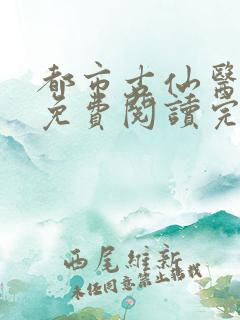 都市古仙醫
免費閱讀完
西尾維新
未經同意禁止轉載